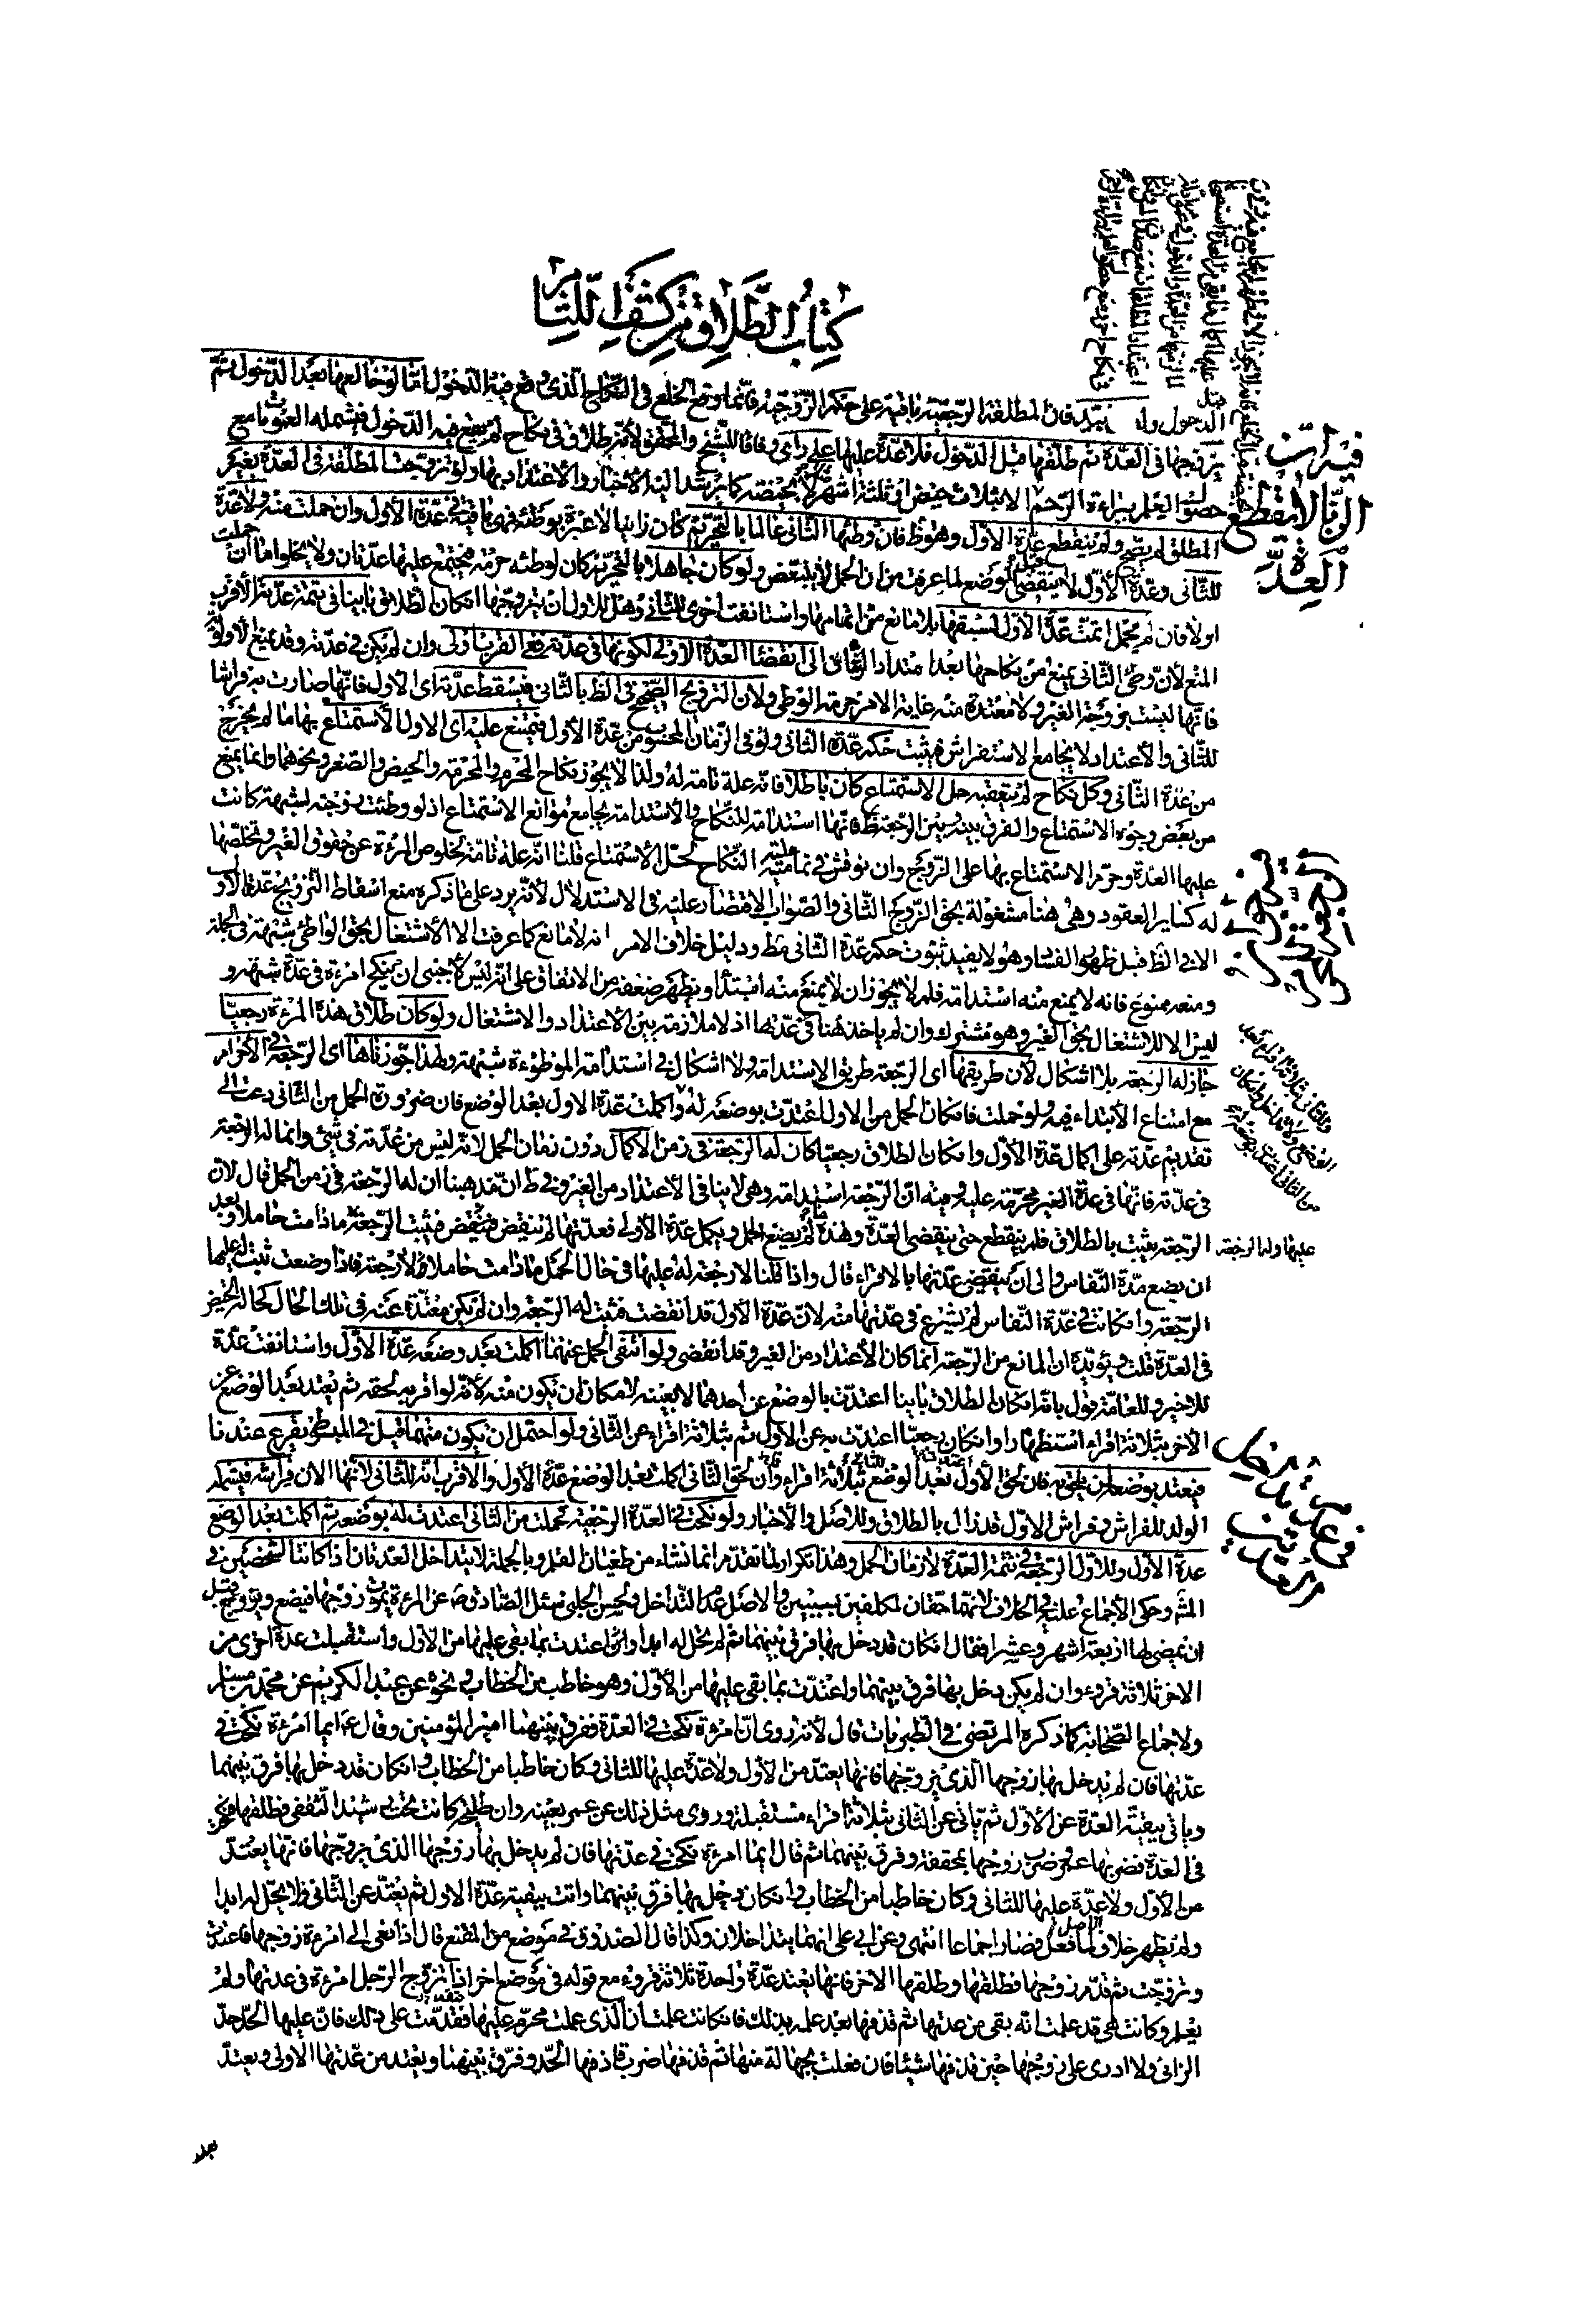 كتاب الطلاق من كشف اللثام
الدخول ولا يرد فان المطلقة الرجعية باقية على حكم الزوجية فانما وقع الخلع في النكاح الذي وقع فيه الدخول اما لو خالعها بعد الدخول ثم
يتزوجها في العدة ثم طلقها قبل الدخول فلا عدة عليها على راى وفاقا للشيخ والمحقق لانه طلاق في نكاح لم يقع فيه الدخول فيشمله العموم
حصول العلم ببراءة الرحم الا بثلاث حيض او ثلثة اشهر لا بحيضة كما يرشد اليه الاخبار والاعتداد بها ولو تزوجت المطلقة في العدة بغير
المطلق لم يصح ولم ينقطع عدة الاول وهو ظ فان وطئها الثاني عالما بالتحريم كان زانيا لا عبرة بوطئه فهى باقية في عدة الاول وان حملت منه ولا عدة
للثاني وعدة الاول لا ينقضى بالوضع لما عرفت من ان الحمل لا يتبعض ولو كان جاهلا بالتحريم كان لوطئه حرمة فيجتمع عليها عدتان ولا يخلوا اما ان حملت
او لا فان لم يحمل اتمت عدة الاول لسبقها بلا مانع من اتمامها واستانفت اخرى للثاني وهل للاول ان يتزوجها اذا كان الطلاق باينا في تتمة عدته الاقرب
المنع لان وطئ الثاني يمنع من نكاحها بعد امتداد الى انقضاء العدة الاولى لكونها في عدته ففي القرب اولى وان لم يكن في عدته وقد يمنع الاولوية
فانها ليست بزوجة الغير ولا معتدة منه غاية الامر حرمة الوطى ولان التزويج الصحيح في الظ بالثاني فيسقط عدته اى الاول فانها صارت به فراشا
للثاني والاعتداد لا يجامع الاستفراش فيثبت حكم عدة الثاني ولو في الزمان المحسوب من عدة الاول فيمتنع عليه اى الاول الاستمتاع بها ما لم يخرج
من عدة الثاني وكل نكاح لم يتعقبه حل الاستمتاع كان باطلا فانه علة تامة له ولذا لا يجوز نكاح المحرم والمحرمة والحيض والصغر ونحوهما وانما يمنع
من بعض وجوه الاستمتاع والفرق بينه وبين الرجعة ظ فانها استدامة للنكاح والاستدامة يجامع موانع الاستمتاع اذ لو وطئت زوجته لشبهة كانت
عليها العدة وحرم الاستمتاع بها على الزوج وان نوقش في تمامية علية النكاح لحل الاستمتاع قلنا انه علة تامة لخلوص المرءة عن حقوق الغير وتخلصها
له كساير العقود وهى هنا مشغولة بحق الزوج الثاني والصواب الاقتصار عليه في الاستدلال لانه يرد على ما ذكره منع اسقاط التزويج عدة الاول
الا في الظ قبل ظهور الفساد وهو لا يفيد ثبوت حكم عدة الثاني مط ودليل خلاف الامر انه لا مانع كما عرفت الا الاشتغال بحق الواطئ بشبهة في الجملة
ومنعه ممنوع فانه لا يمنع منه استدامة فلم لا يجوز ان لا يمنع منه ابتداء ويظهر ضعفه من الاتفاق على انه ليس لاجنبى ان ينكح امرءة في عدة شبهة و
ليس الا للاشتغال بحق الغير وهو مشترك وان لم ياخذ هنا في عدتها اذ لا ملازمة بين الاعتداد والاشتغال ولو كان طلاق هذه المرءة رجعيا
جاز له الرجعة بلا اشكال لان طريقها اى الرجعة طريق الاستدامة ولا اشكال في استدامة الموطوءة شبهة ولهذا جوزناها اى الرجعة في الاحرام
مع امتناع الابتداء فيه ولو حملت فان كان الحمل من الاول اعتدت بوضعه له واكملت عدة الاول بعد الوضع فان ضرورة الحمل من الثاني دعت الى
تقديم عدته على اكمال عدة الاول وان كان الطلاق رجعيا كان له الرجعة في زمن الاكمال دون زمان الحمل لانه ليس من عدته في شئ وانما له الرجعة
في عدته فانها في عدة الغير محرمة عليه وفيه ان الرجعة استدامة وهى لا ينافى الاعتداد من الغير وفي ط ان مذهبنا ان له الرجعة في زمن الحمل قال لان
الرجعة يثبت بالطلاق فلم ينقطع حتى ينقضى العدة وهذه ما لم يضع الحمل ويكمل عدة الاولى فعدتها لم ينقض فيثبت الرجعة ما دامت حاملا وبعد
ان يضع مدة النفاس والى ان ينقضى عدتها بالاقراء قال واذا قلنا لا رجعة له عليها في حال الحمل ما دامت حاملا فلا رجعة فاذا وضعت ثبت له عليها
الرجعة وان كانت في مدة النفاس لم يشرع في عدتها منه لان عدة الاول قد انقضت فثبت له الرجعة وان لم يكن معتدة عنه في تلك الحال كحالة الحيض
في العدة قلت ويؤيده ان المانع من الرجعة انما كان الاعتداد من الغير وقد انقضى ولو انتفى الحمل عنهما اكملت بعد وضعه عدة الاول واستانفت عدة
للاخير وللعامة قول بانه ان كان الطلاق باينا اعتدت بالوضع عن احدهما لا بعينه لامكان ان يكون منه لانه لو اقر به لحقه ثم يعتد بعد الوضع عن
الاخر بثلاثة اقراء استظهارا وان كان رجعيا اعتدت به عن الاول ثم بثلاثة اقراء عن الثاني ولو احتمل ان يكون منهما قيل في المبسوط يقرع عندنا
فيعتد بوضعه لمن يلحق به فان لحق الاول بعد الوضع بثلاثة اقراء وان لحق الثاني اكملت بعد الوضع عدة الاول والاقرب انه للثاني لانها الان فراشه فيشمله
الولد للفراش وفراش الاول قد زال بالطلاق وللاصل والاخبار ولو نكحت في العدة الرجعية فحملت من الثاني اعتدت له بوضعه ثم اكملت بعد الوضع
عدة الاول وللاول الرجعة في تتمة العدة لا زمان الحمل وهذا تكرار لما تقدم انما نشاء من طغيان القلم وبالجملة لا يتداخل العدتان اذا كانتا لشخصين في
المشهور وحكى الاجماع عليه في الخلاف لانهما حقان لمكلفين بسببين والاصل عدم التداخل ولحسن الحلبى سئل الصادق ع عن المرءة يموت زوجها فيضع ويتزوج قبل
ان يمضى لها اربعة اشهر وعشرا فقال ان كان قد دخل بها فرق بينهما ثم لم يحل له ابدا واعتدت بما بقى عليها من الاول واستقبلت عدة اخرى من
الاخر ثلاثة قروء وان لم يكن دخل بها فرق بينهما واعتدت بما بقى عليها من الاول وهو خاطب من الخطاب ونحوه عن عبد الكريم عن محمد بن مسلم
ولاجماع الصحابة كما ذكره المرتضى في الطبريات قال لانه روى ان امرءة نكحت في العدة ففرق بينهما امير المؤمنين وقال ع ايما امرءة نكحت في
عدتها فان لم يدخل بها زوجها الذى يزوجها فانها يعتد من الاول ولا عدة عليها للثاني وكان خاطبا من الخطاب وان كان قد دخل بها فرق بينهما
وياتى ببقية العدة عن الاول ثم ياتى عن الثاني بثلاثة اقراء مستقبلة وروى مثل ذلك عن عمر بعينه وان طليحة كانت تحت رشيد الثقفى فطلقها فنكحت
في العدة فضربها عمر وضرب زوجها بمخفقة وفرق بينهما ثم قال ايما امرءة نكحت في عدتها فان لم يدخل بها زوجها الذى يزوجها فانها يعتد
من الاول ولا عدة عليها للثاني وكان خاطبا من الخطاب وان كان دخل بها فرق بينهما واتت ببقية عدة الاول ثم يعتد عن الثاني ولا يحل له ابدا
ولم يظهر خلاف لما فعل فصار اجماعا انتهى وعن ابى على انهما يتداخلان وكذا قال الصدوق في موضع من المقنع قال اذا نعى الى امرءة زوجها فاعتدت
وتزوجت ثم قدم زوجها فطلقها وطلقها الاخر فانها يعتد عدة واحدة ثلاثة قروء مع قوله في موضع اخر اذا تزوج الرجل امرءة في عدتها ولم
يعلم وكانت هى قد علمت انه بقى من عدتها ثم قذفها بعد علمه بذلك فان كانت علمت ان الذى عملت محرم عليها فقدمت على ذلك فان عليها الحد حد
الزانى ولا ارى على زوجها حين قذفها شيئا فان فعلت بجهالة منها ثم قذفها ضرب قاذفها الحد وفرق بينهما ويعتد من عدتها الاولى ويعتد
فيه ان
الزنا لا يقطع
العدة
عليها وله الرجعة